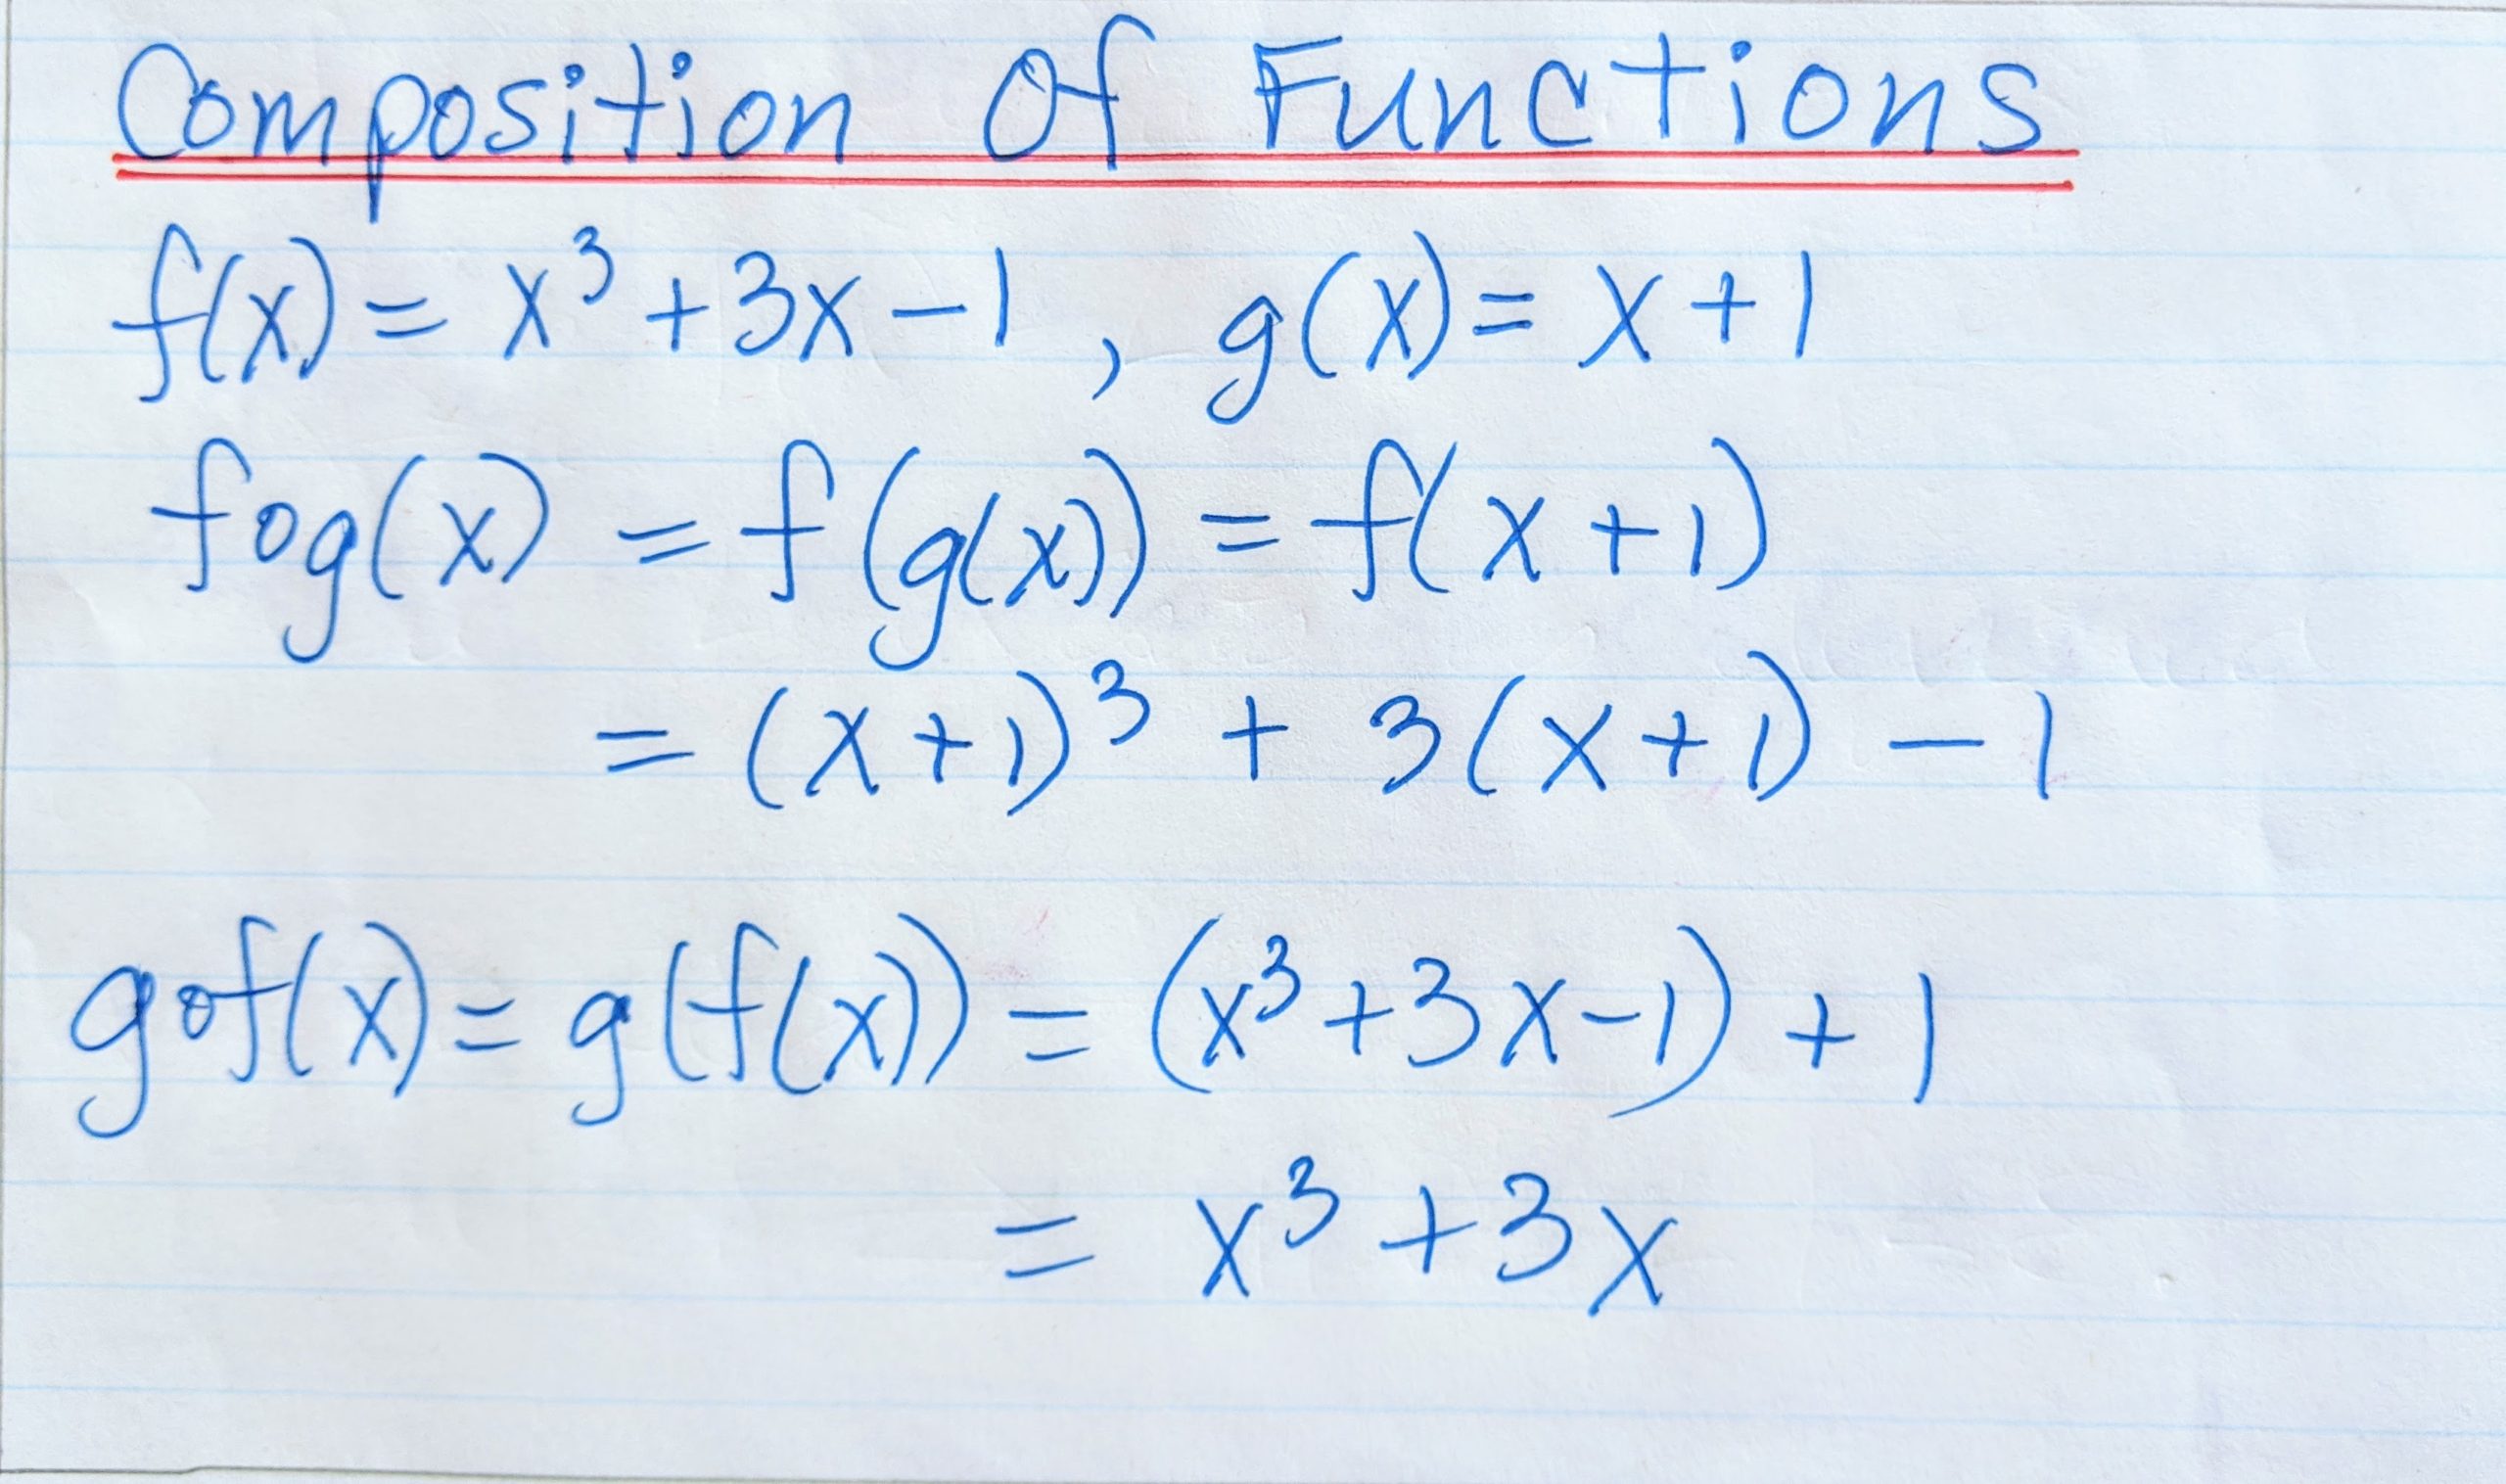 Composition Of Functions
f(x) = x³ + 3x - 1 , g(x) = x + 1
fog(x) = f(g(x)) = f(x + 1)
= (x + 1)³ + 3(x + 1) - 1
gof(x) = g(f(x)) = (x³ + 3x - 1) + 1
= x³ + 3x